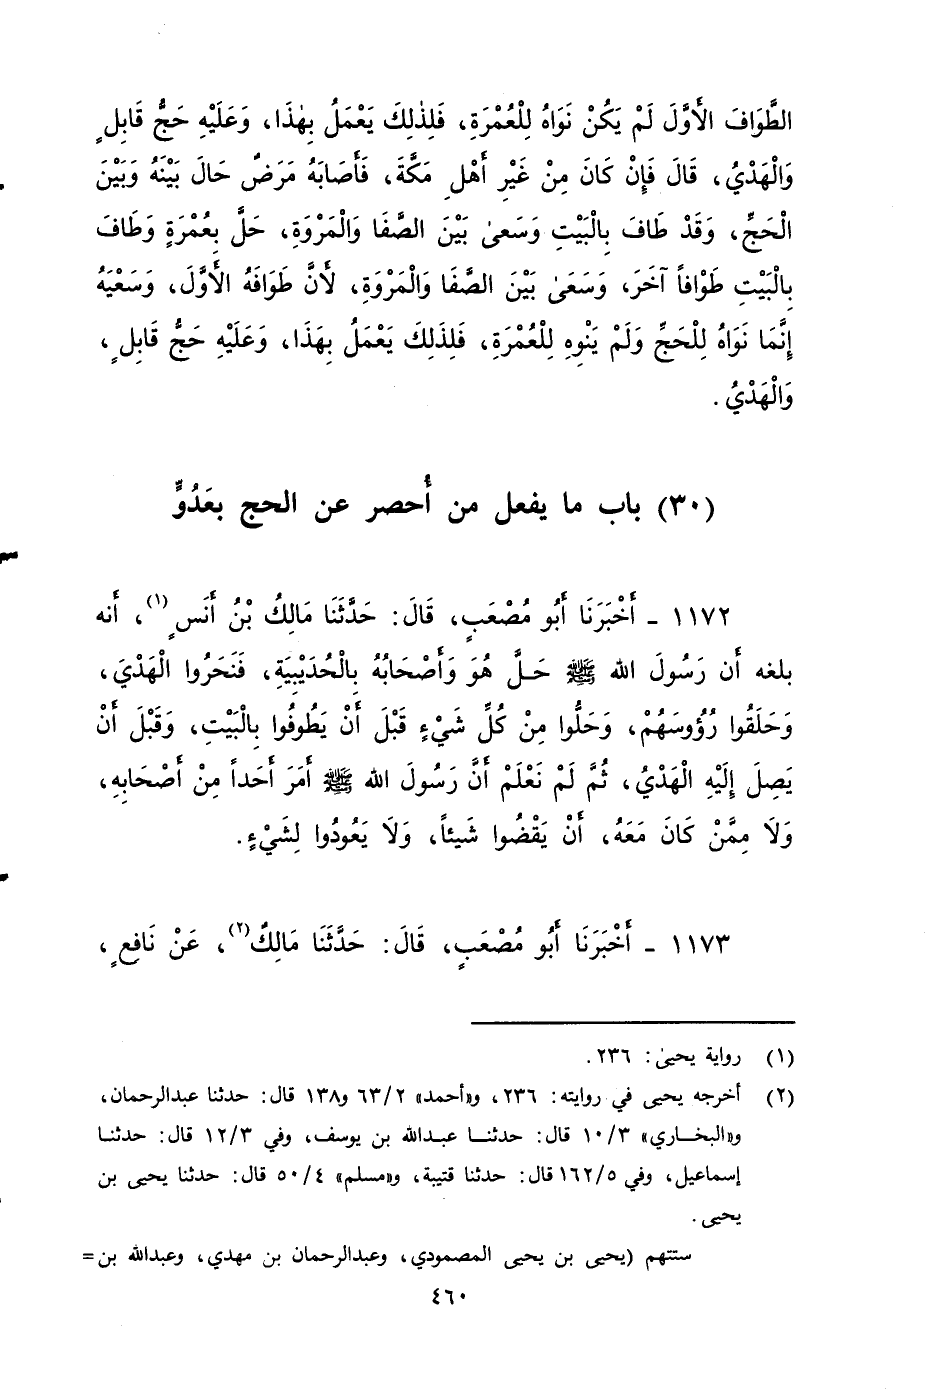 الطَّوَافَ الأَوَّلَ لَمْ يَكُنْ نَوَاهُ لِلْعُمْرَةِ، فَلِذٰلِكَ يَعْمَلُ بِهٰذَا، وَعَلَيْهِ حَجُّ قَابِلٍ
وَالْهَدْيُ، قَالَ فَإِنْ كَانَ مِنْ غَيْرِ أَهْلِ مَكَّةَ، فَأَصَابَهُ مَرَضٌ حَالَ بَيْنَهُ وَبَيْنَ
الْحَجِّ، وَقَدْ طَافَ بِالْبَيْتِ وَسَعىٰ بَيْنَ الصَّفَا وَالْمَرْوَةِ، حَلَّ بِعُمْرَةٍ وَطَافَ
بِالْبَيْتِ طَوْافاً آخَرَ، وَسَعَىٰ بَيْنَ الصَّفَا وَالْمَرْوَةِ، لأَنَّ طَوَافَهُ الأَوَّلَ، وَسَعْيَهُ
إِنَّمَا نَوَاهُ لِلْحَجِّ وَلَمْ يَنْوِهِ لِلْعُمْرَةِ، فَلِذَلِكَ يَعْمَلُ بِهَذَا، وَعَلَيْهِ حَجُّ قَابِلٍ،
وَالْهَدْيُ.
(٣٠) باب ما يفعل من أُحصر عن الحج بعَدُوٍّ
١١٧٢ ـ أَخْبَرَنَا أَبُو مُصْعَبٍ، قَالَ: حَدَّثَنَا مَالِكُ بْنُ أَنَسٍ(١)، أَنه
بلغه أَن رَسُولَ الله ﷺ حَلَّ هُوَ وَأَصْحَابُهُ بِالْحُدَيْبِيَةِ، فَنَحَرُوا الْهَدْيَ،
وَحَلَقُوا رُؤُوسَهُمْ، وَحَلُّوا مِنْ كُلِّ شَيْءٍ قَبْلَ أَنْ يَطُوفُوا بِالْبَيْتِ، وَقَبْلَ أَنْ
يَصِلَ إِلَيْهِ الْهَدْيُ، ثُمَّ لَمْ نَعْلَمْ أَنَّ رَسُولَ الله ﷺ أَمَرَ أَحَداً مِنْ أَصْحَابِهِ،
وَلَا مِمَّنْ كَانَ مَعَهُ، أَنْ يَقْضُوا شَيئاً، وَلَا يَعُودُوا لِشَيْءٍ.
١١٧٣ ـ أَخْبَرَنَا أَبُو مُصْعَبٍ، قَالَ: حَدَّثَنَا مَالِكٌ(٢)، عَنْ نَافِعٍ،
(١) رواية يحيىٰ: ٢٣٦.
(٢) أخرجه يحيى في روايته: ٢٣٦، و«أحمد» ٦٣/٢ و١٣٨ قال: حدثنا عبدالرحمان،
و«البخاري» ١٠/٣ قال: حدثنا عبدالله بن يوسف، وفي ١٢/٣ قال: حدثنا
إسماعيل، وفي ١٦٢/٥ قال: حدثنا قتيبة، و«مسلم» ٥٠/٤ قال: حدثنا يحيى بن
يحيى.
ستتهم (يحيى بن يحيى المصمودي، وعبدالرحمان بن مهدي، وعبدالله بن=
٤٦٠